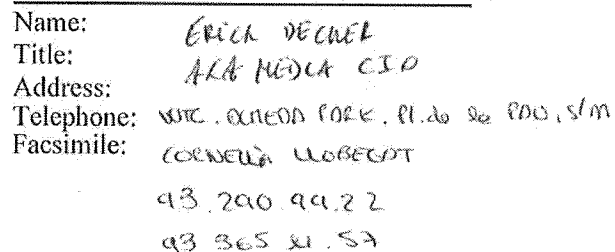 Name: ERICK DECKER
Title: AKA MEDIA CIO
Address:
Telephone: WTC. ALMEDA PARK. Pl. de la PAU, S/N
Facsimile: CORNELLÀ LLOBEGAT
93.290.99.22
93 365 57